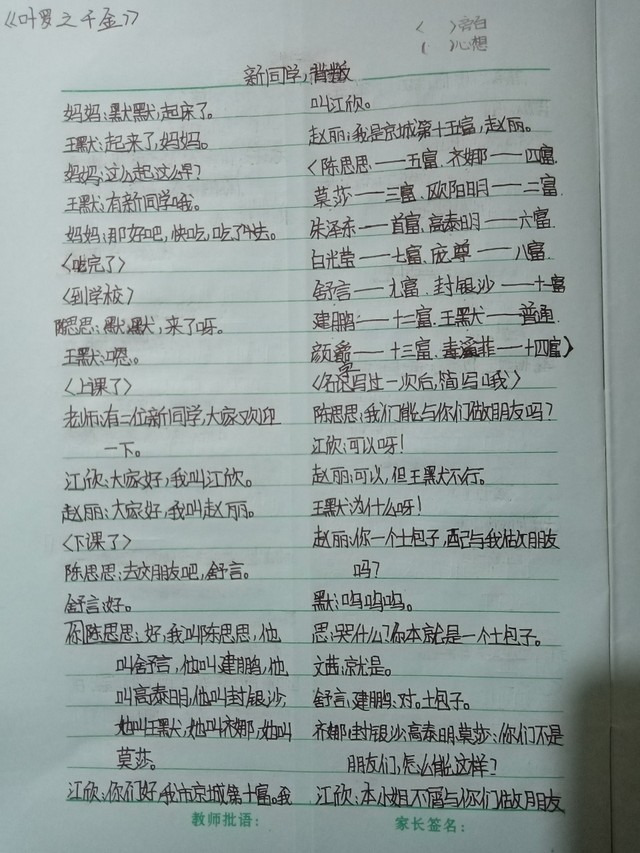 《叶罗之千金》
< >旁白
( )心想
新同学,背叛
妈妈:默默,起床了。
王默:起来了,妈妈。
妈妈:这么起这么早?
王默:有新同学哦。
妈妈:那好吧,快吃,吃了去。
<吃完了>
<到学校>
陈思思:默默,来了呀。
王默:嗯。
<上课了>
老师:有二位新同学,大家欢迎
一下。
江欣:大家好,我叫江欣。
赵丽:大家好,我叫赵丽。
<下课了>
陈思思:去交朋友吧,舒言。
舒言:好。
陈思思:好,我叫陈思思,他
叫舒言,他叫建鹏,他
叫高泰明,他叫封银沙,
她叫王默,她叫齐娜,她叫
莫莎。
江欣:你们好,我市京城第十富。我
叫江欣。
赵丽:我是京城第十五富,赵丽。
<陈思思——五富.齐娜——四富.
莫莎——三富.欧阳明——二富.
朱泽东——首富.高泰明——六富.
白光莹——七富.庞尊——八富.
舒言——九富.封银沙——十一富
建鹏——十二富.王默——普通.
颜爵——十三富.毒滴菲——十四富>
<名只写过一次后,简写哦>
陈思思:我们能与你们做朋友吗?
江欣:可以呀!
赵丽:可以,但王默不行。
王默:为什么呀!
赵丽:你一个土包子,配与我做朋友
吗?
默:呜呜呜。
思:哭什么?你本就是一个土包子。
文茜:就是。
舒言,建鹏:对。土包子。
齐娜,封银沙,高泰明,莫莎:你们不是
朋友们,怎么能这样?
江欣:本小姐不屑与你们做朋友
教师批语:
家长签名: